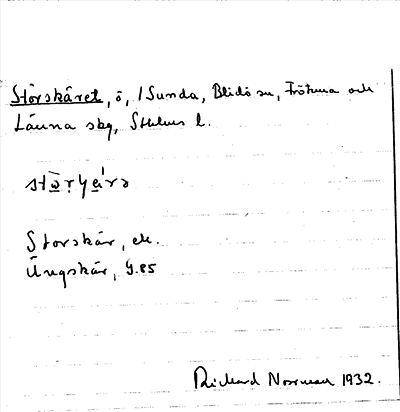 Storskäret, ö, /Sunda, Blidö sn, Frötuna och
Länna skg, Sthlms l.
Storskär, ek.
Ängskär, G.85
Richard Norrman 1932.